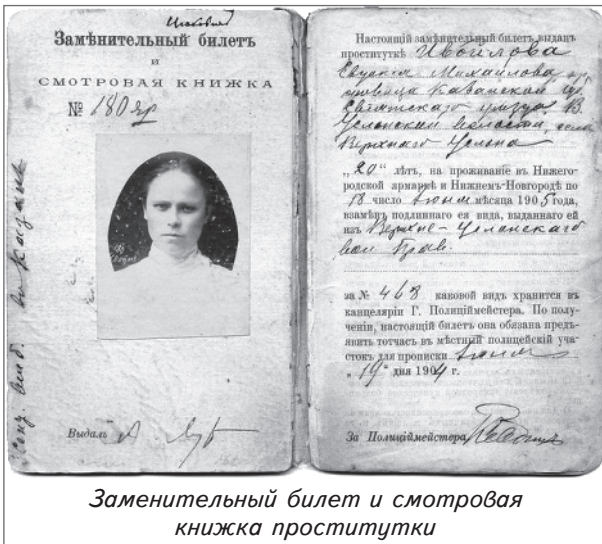 Замѣнительный билетъ
и
СМОТРОВАЯ КНИЖКА
№ 180 яр
Выдалъ
Настоящій замѣнительный билетъ выданъ
проституткѣ Ивойлова
Евгенія Михайлова
Казанской
Свіяжскаго уѣзда В.
Услонской волости, села
Верхняго Услона
„20“ лѣтъ, на проживаніе въ Нижего-
родской ярмаркѣ и Нижнемъ-Новгородѣ по
18 число Іюня мѣсяца 1905 года,
взамѣнъ подлиннаго ея вида, выданнаго ей
изъ Верхне-Услонскаго
вол Прав.
за № 468 каковой видъ хранится въ
канцеляріи Г. Полиціймейстера. По полу-
ченіи, настоящій билетъ она обязана предъ-
явить тотчасъ въ мѣстный полицейскій уча-
стокъ для прописки Іюня
„19“ дня 1904 г.
За Полиціймейстера
Заменительный билет и смотровая
книжка проститутки